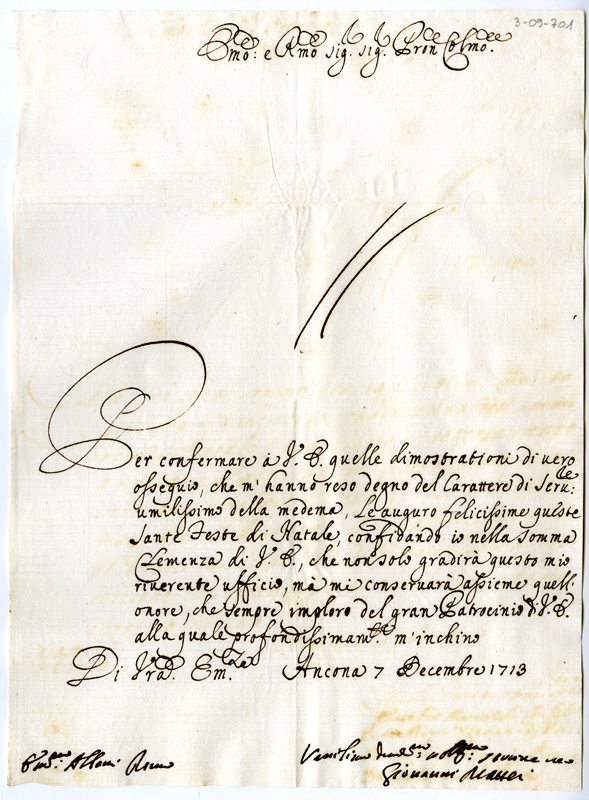 3-09-701
Emo: e Rmo sig. sig. Pron Colmo.
Per confermare à V. E. quelle dimostrationi di vero
ossequio, che m'hanno reso degno del Carattere di Seru:le
umilissimo della medema, Le auguro felicissime queste
Sante Feste di Natale, confidando io nella somma
Clemenza di V. E., che non solo gradirà questo mio
riverente ufficio, mà mi conservarà assieme quell'
onore, che sempre imploro del gran Patrocinio di V. E.
alla quale profondissimam.te m'inchino
Di Vra Em.za Ancona 7 Decembre 1713
Albani Roma
Giovanni